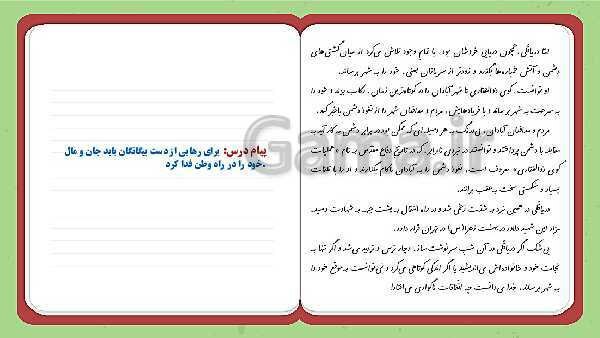 امّا دریاقلی، همچون دریایی خروشان بود. با تمام وجود تلاش می‌کرد از میان گلّه‌های
دشمن و آتش خمپاره‌ها بگذرد و زودتر از سربازان بعثی، خود را به شهر برساند.
او توانست، کوی ذوالفقاری تا شهر آبادان را در کوتاه‌ترین زمان، رکاب بزند و خود را
به سرعت به شهر برساند و با فریادهایش، مردم و مدافعان شهر را از نفوذ دشمن باخبر کند.
مردم و مدافعان آبادان، بی‌درنگ به هر وسیله‌ای که ممکن بود در برابر دشمن به کار آید به
مقابله با دشمن پرداختند و توانستند در نبردی نابرابر که در تاریخ دفاع مقدّس به نام «عملیات
کوی ذوالفقاری» معروف است، نفوذ دشمن را به آبادان ناکام بگذارند و او را با تلفات
بسیار و شکستی سخت به عقب برانند.
دریاقلی در همین نبرد به شدّت زخمی شد و در راه انتقال به پشت جبهه به شهادت رسید.
مزار این شهید دلاور در بهشت زهرا(س) در تهران قرار دارد.
بی‌شک اگر دریاقلی در آن شب سرنوشت‌ساز، دچار ترس و تردید می‌شد و اگر تنها به
نجات خود و خانواده‌اش می‌اندیشید یا اگر اندکی کوتاهی می‌کرد و نمی‌توانست به موقع خود را
به شهر برساند، خدا می‌دانست چه اتفاقات ناگواری می‌افتاد!
پیام درس: برای رهایی از دست بیگانگان باید جان و مال
خود را در راه وطن فدا کرد.
Gama.ir